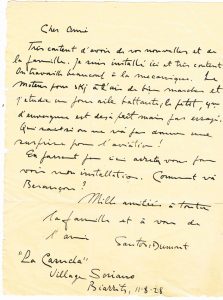 Cher Ami
Très content d'avoir de vos nouvelles et de
la famille. Je suis installé ici et très content
On travaille beaucoup à la mecanique. Le
Moteur pour ski a l'air de bien marcher et
j'etude un pour aile battante, le petit, 4m
d'envergure est déjà fait mais pas essayé.
Qui sait si on ne va pas donner une
surprise pour l'aviation!
En passant par ici arretez vous pour
voir mon installation. Comment va
Besançon?
Mille amitiés à toute
la famille et à vous de
l'ami
Santos=Dumont
"La Caruela"
Village Soriano
Biarritz, 11-8-28